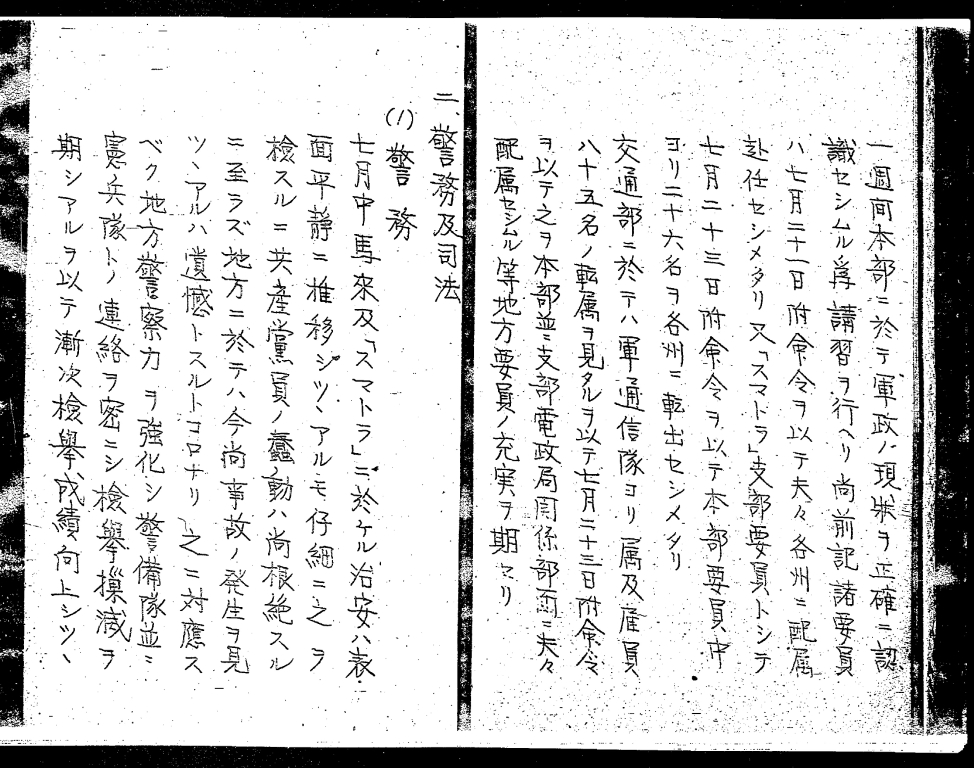 一週間本部ニ於テ軍政ノ現状ヲ正確ニ認
識セシムル為講習ヲ行ヘリ尚前記諸要員
ハ七月二十一日附命令ヲ以テ夫々各州ニ配属
赴任セシメタリ又「スマトラ」支部要員トシテ
七月二十三日附命令ヲ以テ本部要員中
ヨリ二十六名ヲ各州ニ転出セシメタリ
交通部ニ於テハ軍通信隊ヨリ属及雇員
八十五名ノ転属ヲ見タルヲ以テ七月二十三日附命令
ヲ以テ之ヲ本部並ニ支部電政局関係部面ニ夫々
配属セシムル等地方要員ノ充実ヲ期セリ
二、警務及司法
(1)警務
七月中馬来及「スマトラ」ニ於ケル治安ハ表
面平静ニ推移シツヽアルモ仔細ニ之ヲ
検スルニ共産黨員ノ蠢動ハ尚根絶スル
ニ至ラズ地方ニ於テハ今尚事故ノ発生ヲ見
ツヽアルハ遺憾トスルトコロナリ之ニ対應ス
ベク地方警察力ヲ強化シ警備隊並ニ
憲兵隊トノ連絡ヲ密ニシ檢擧撲滅ヲ
期シアルヲ以テ漸次檢擧成績向上シツヽ